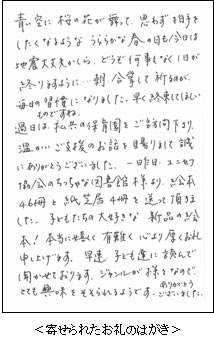 青い空に桜の花が舞って、思わず拍手を
したくなるような うららかな春の日も！今日は
地震大丈夫かしら、どうぞ何事なく1日が
終りますように…朝、合掌して祈るのが、
毎日の習慣になりました。早く終熄してほしい
ものですね。
過日は、私共の保育園をご訪問下さり、
温かいご支援のお話を賜りまして誠
にありがとうございました。一昨日、ユニセフ
協会のちっちゃな図書館様より、絵本
46冊と紙芝居4冊を送って頂きま
した。子どもたちの大好きな 新品の絵
本！本当に嬉しく有難く、心より厚くお礼
申し上げます。早速、子ども達に読んで
聞かせております。ジャンルが様々なので、
とても興味をそそられるようです。
ありがとう
ございました。
＜寄せられたお礼のはがき＞